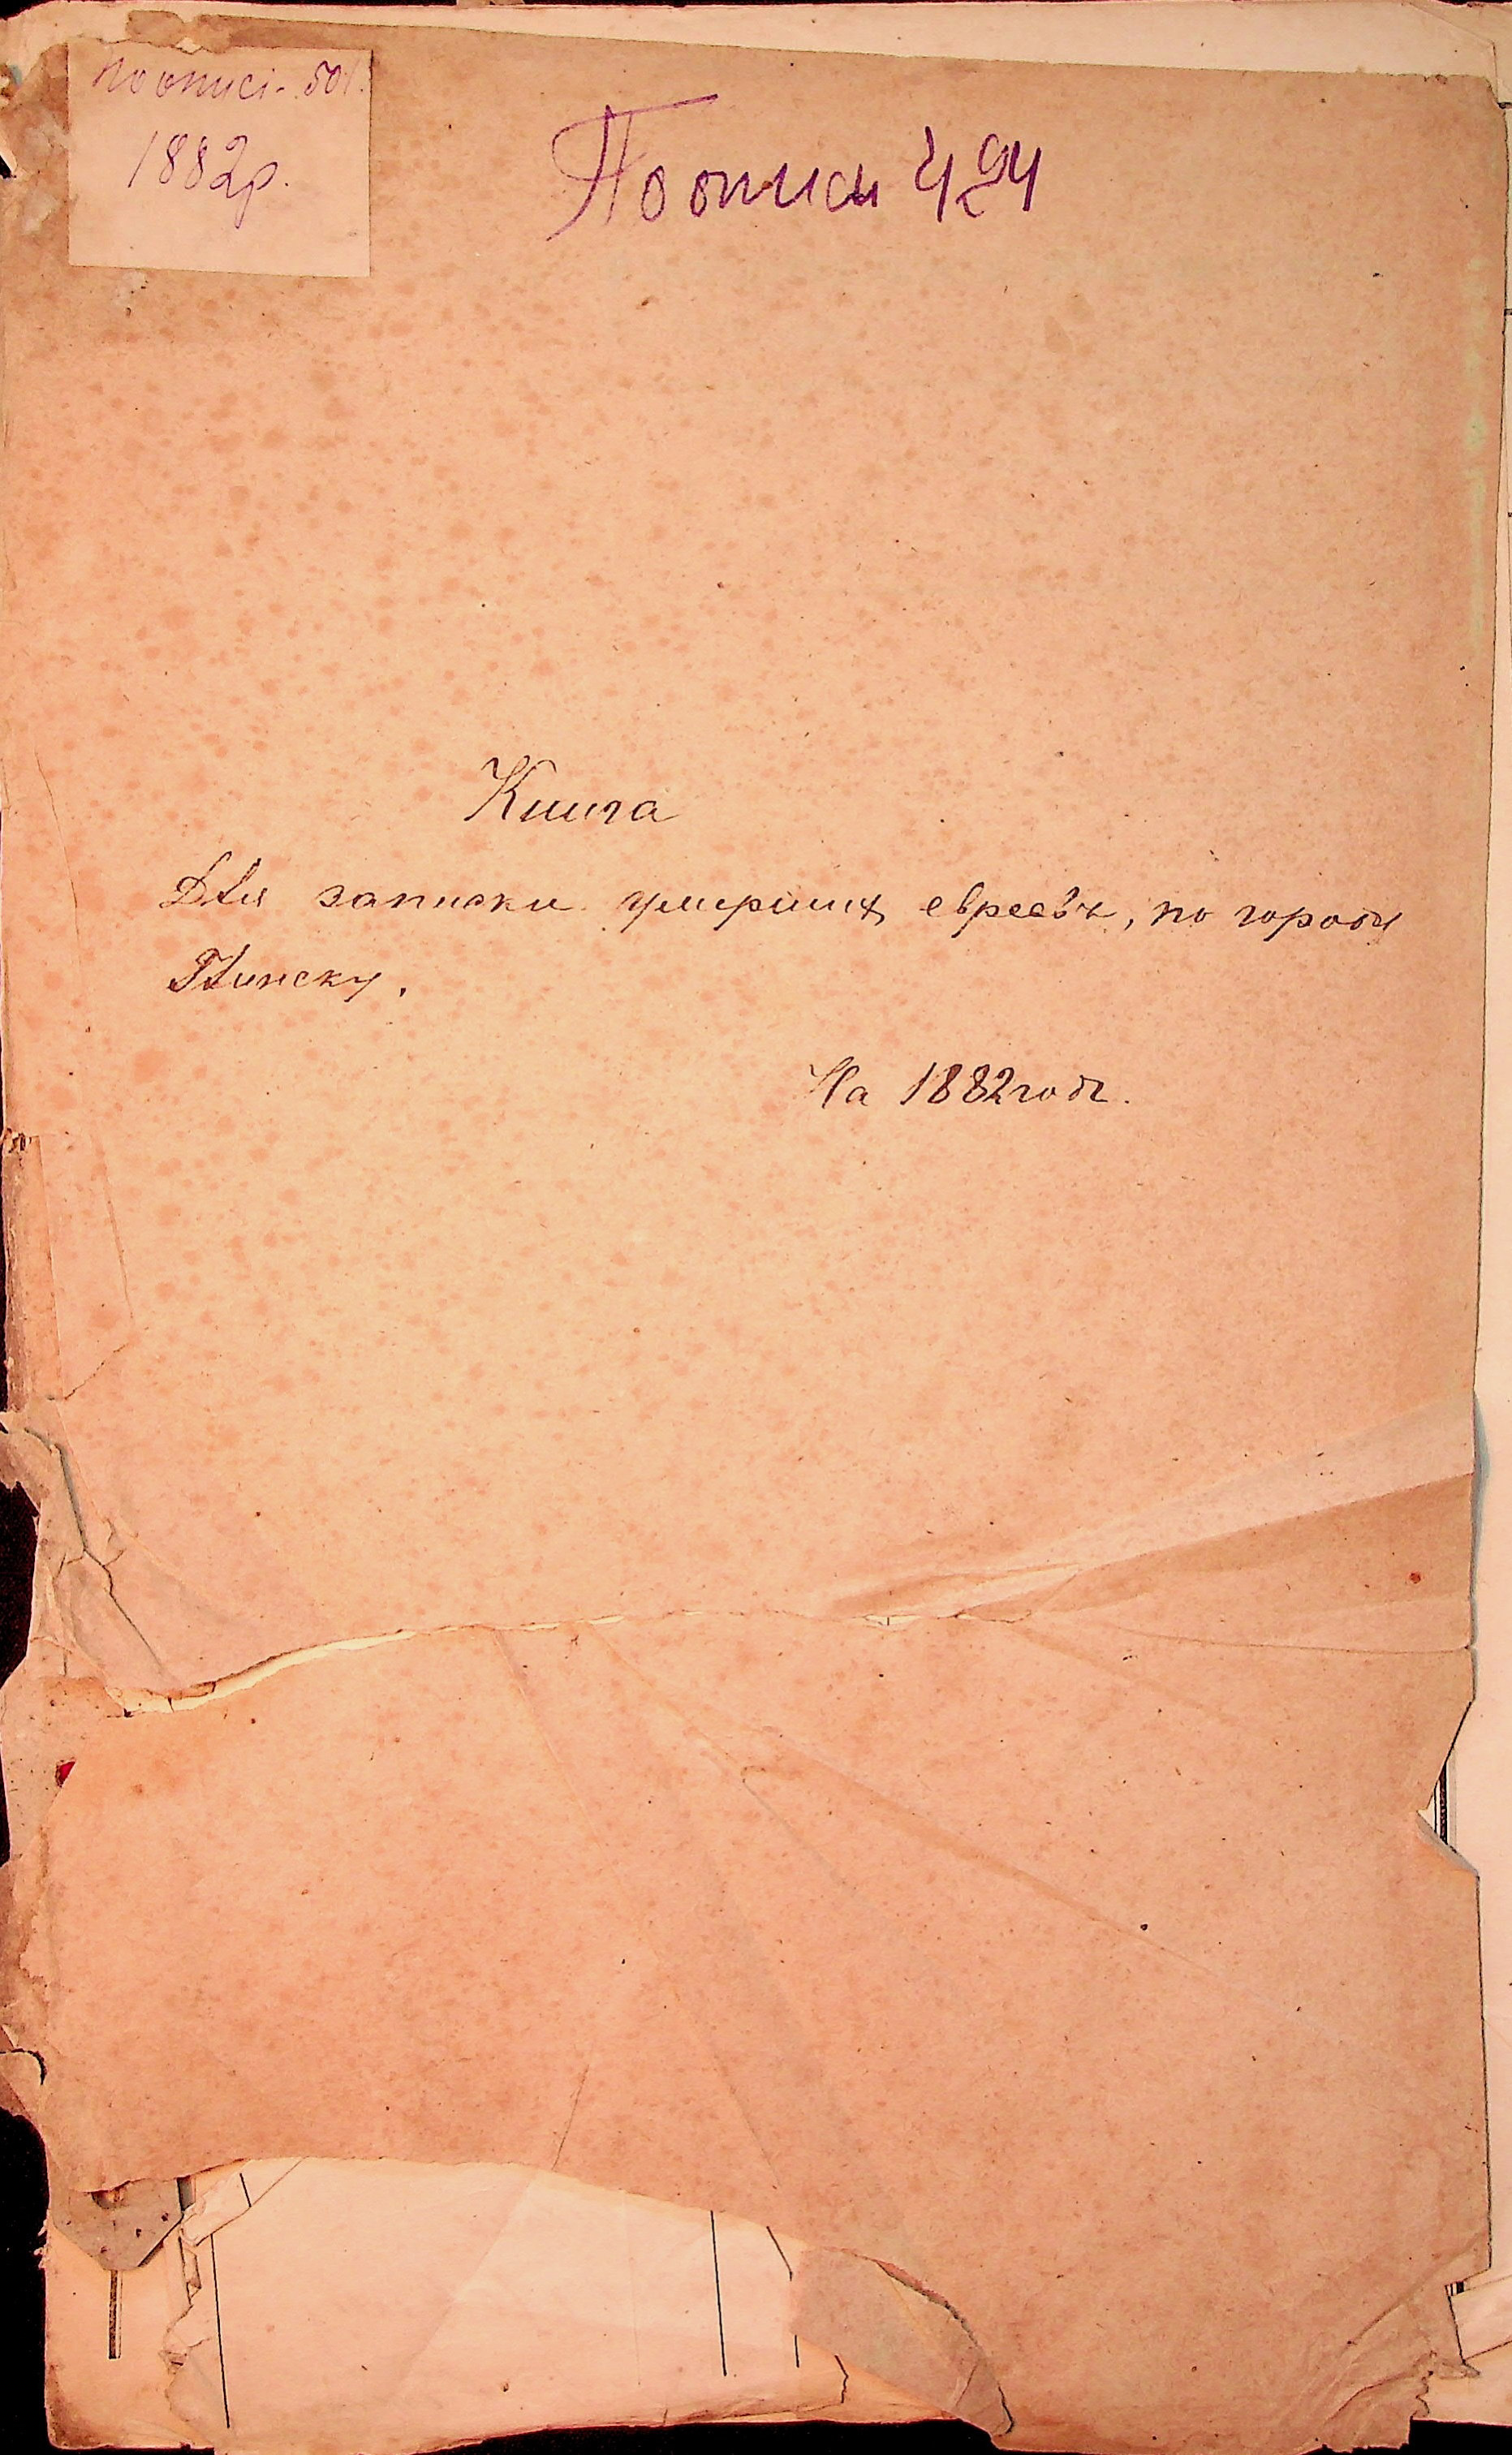 по описі. 501.
1882р.
По описи 494
Книга
Для записки умершихъ евреевъ, по городу
Пинску.
На 1882 годъ.